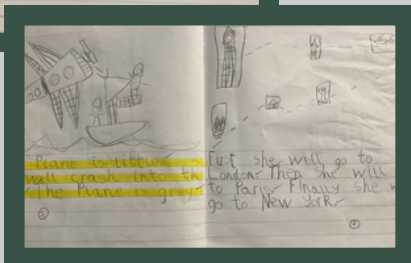 Plane is little
will crash into th
The Plane is grey
②
First she will go to
London. Then she will
to Paris. Finally she w
go to New York.
③